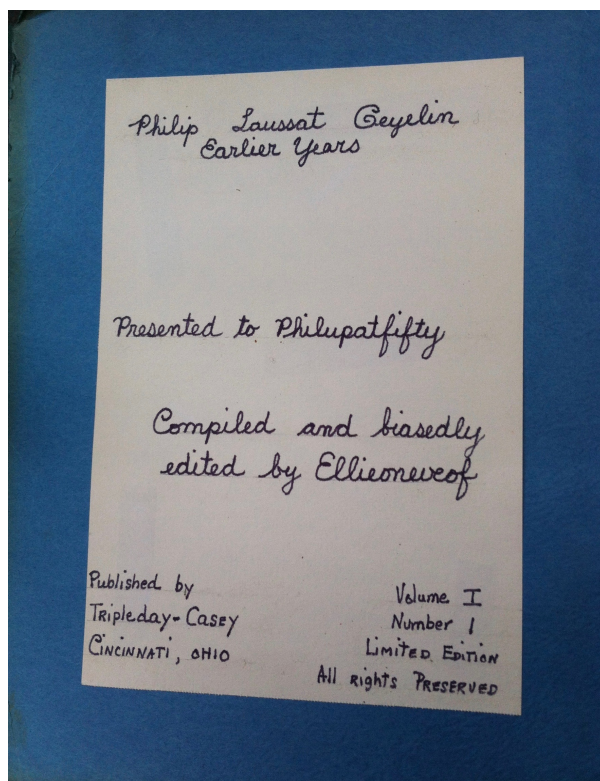 Philip Laussat Geyelin
Earlier Years
Presented to Philupatfifty
Compiled and biasedly
edited by Ellieoneveof
Published by
Tripleday-Casey
Cincinnati, Ohio
Volume I
Number 1
Limited Edition
All rights Preserved